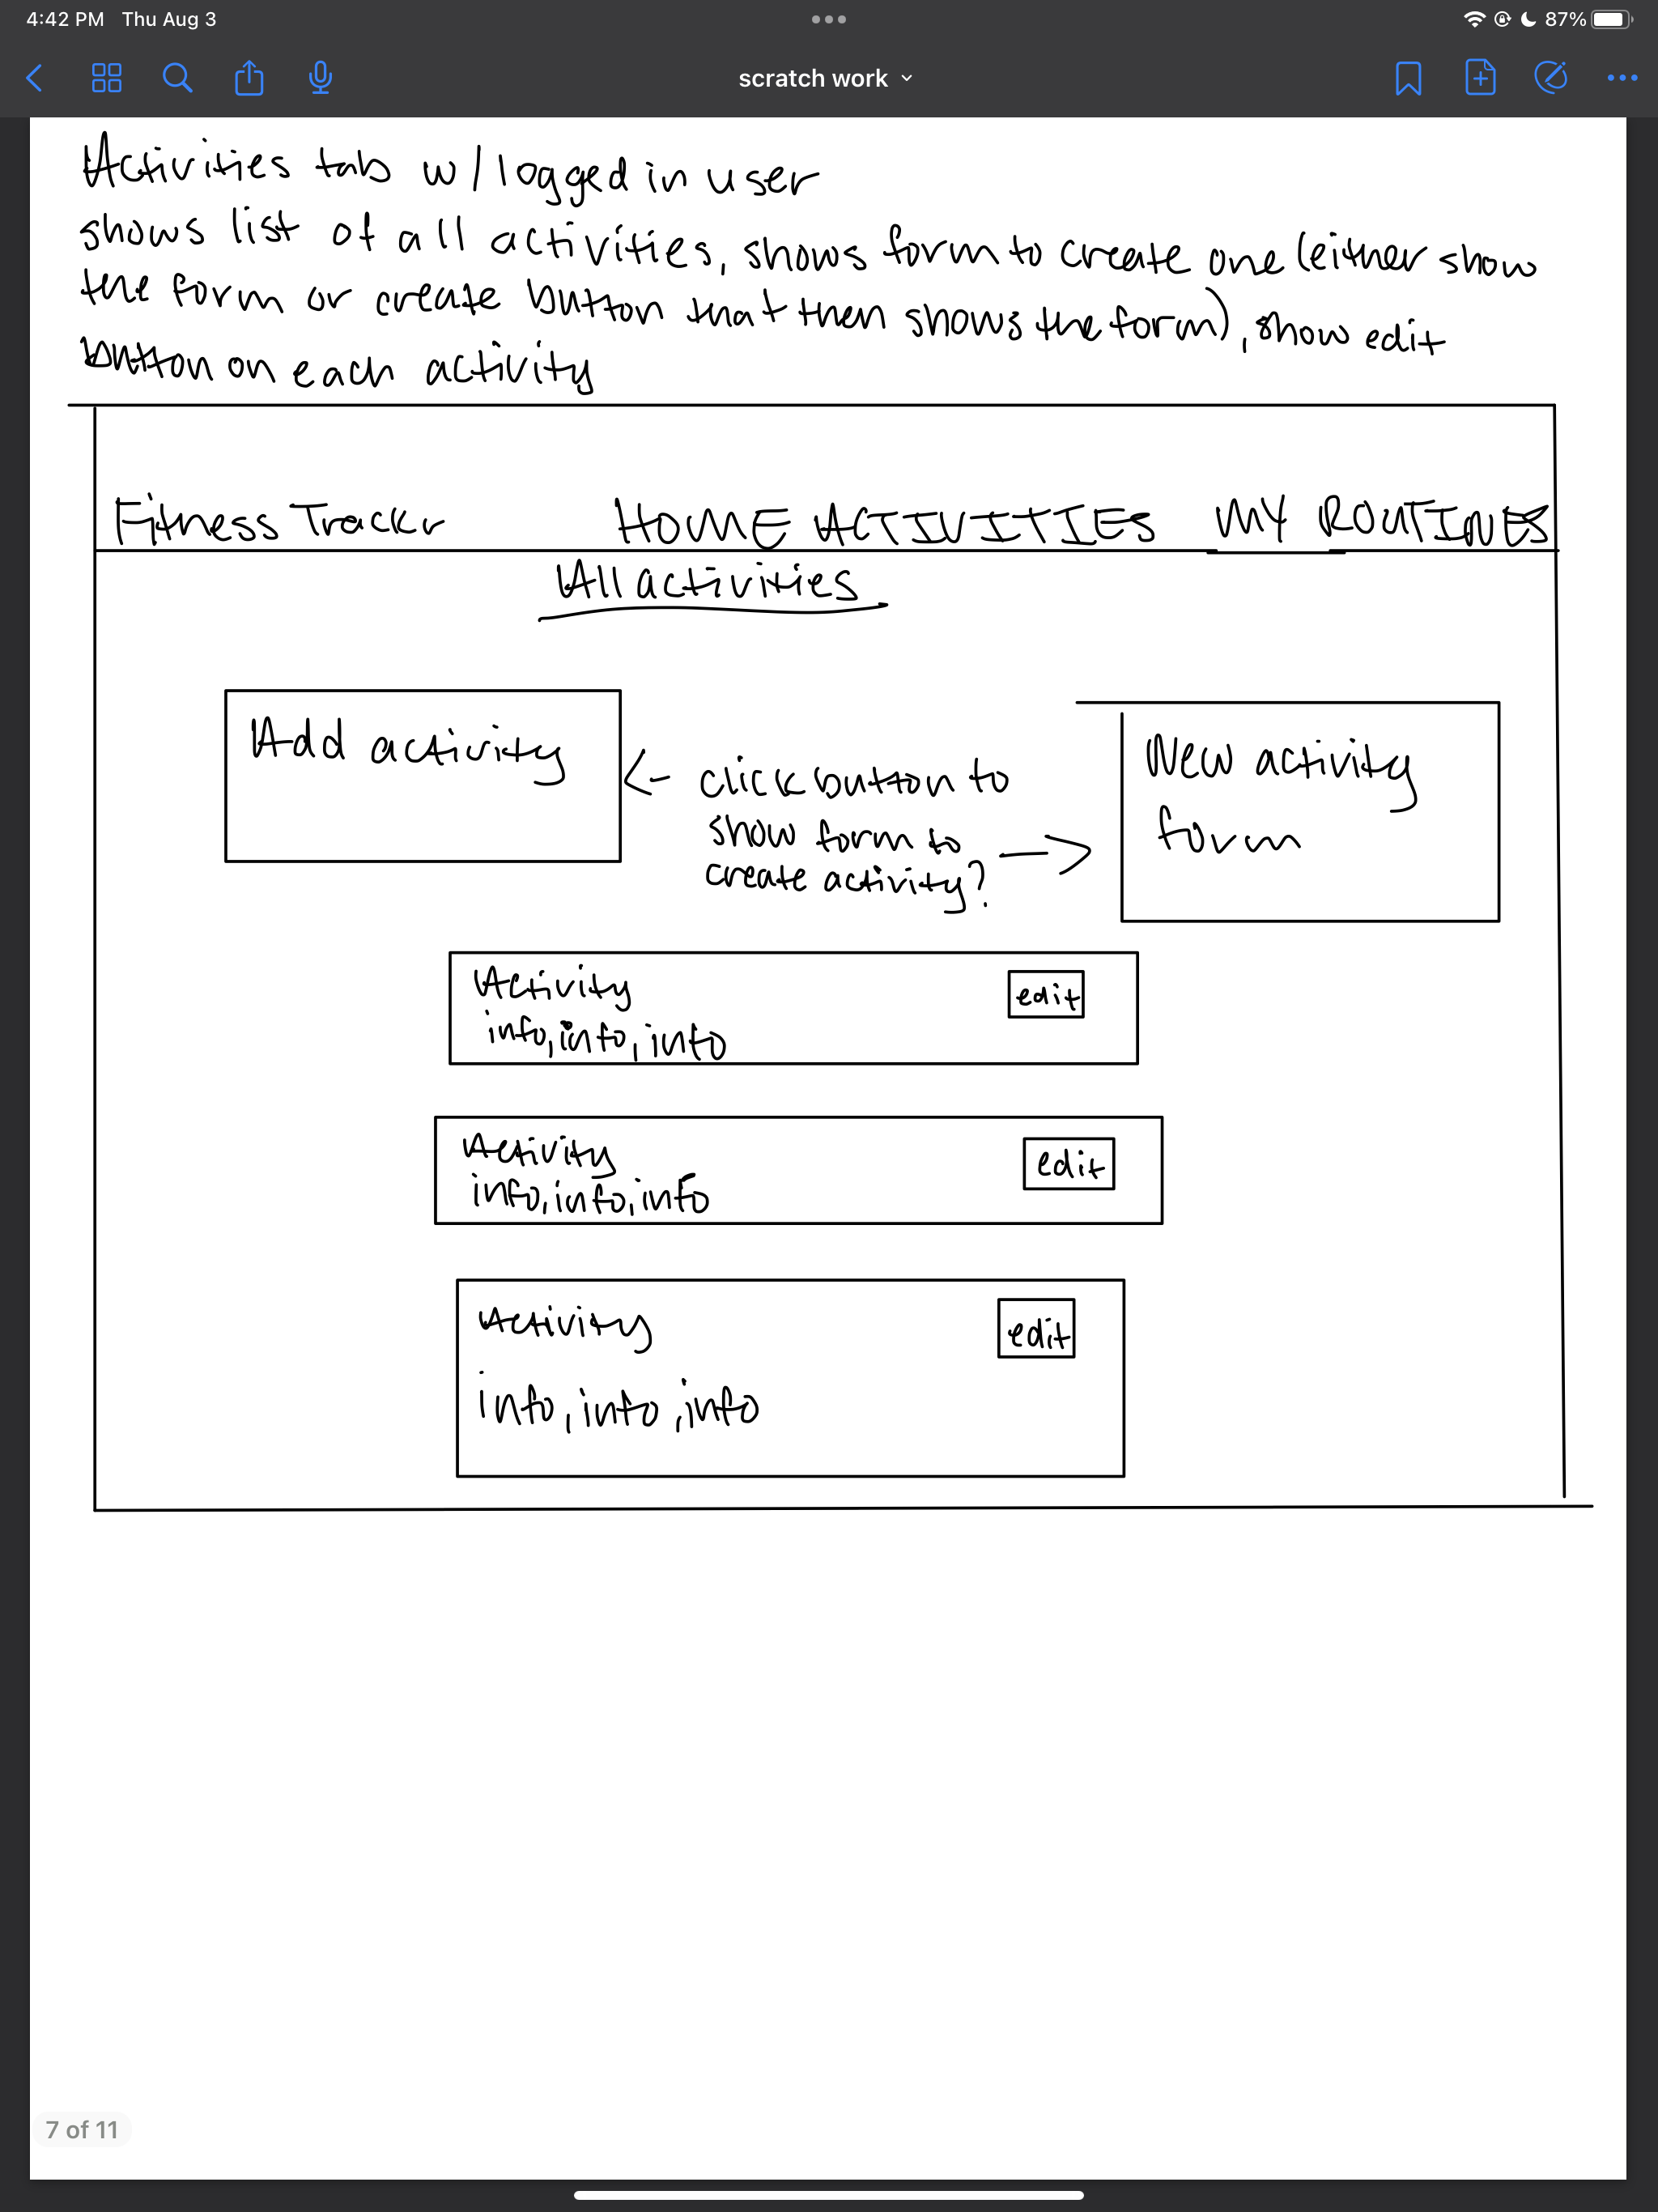 4:42 PM Thu Aug 3
87%
scratch work
Activities tab w/ logged in user
shows list of all activities, shows form to create one (either show
the form or create button that then shows the form), show edit
button on each activity
Fitness Tracker HOME ACTIVITIES MY ROUTINES
All activities
Add activity
click button to
show form to
create activity?
New activity
form
Activity edit
info, info, info
Activity edit
info, info, info
Activity edit
info, info, info
7 of 11